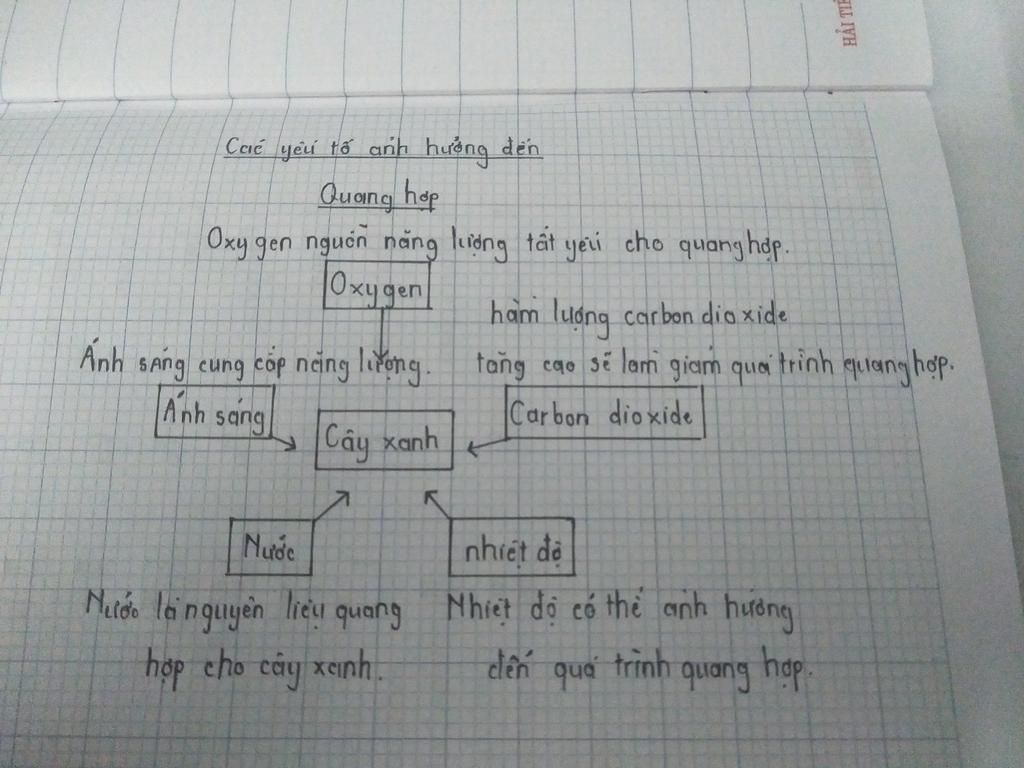 HẢI TIẾ
Các yếu tố ảnh hưởng đến
Quang hợp
Oxy gen nguồn năng lượng tất yếu cho quang hợp.
Oxygen
hàm lượng carbon dioxide
Ánh sáng cung cấp năng lượng.
tăng cao sẽ làm giảm quá trình quang hợp.
Ánh sáng
Cây xanh
Carbon dioxide
Nước
nhiệt độ
Nước là nguyên liệu quang
hợp cho cây xanh.
Nhiệt độ có thể ảnh hưởng
đến quá trình quang hợp.